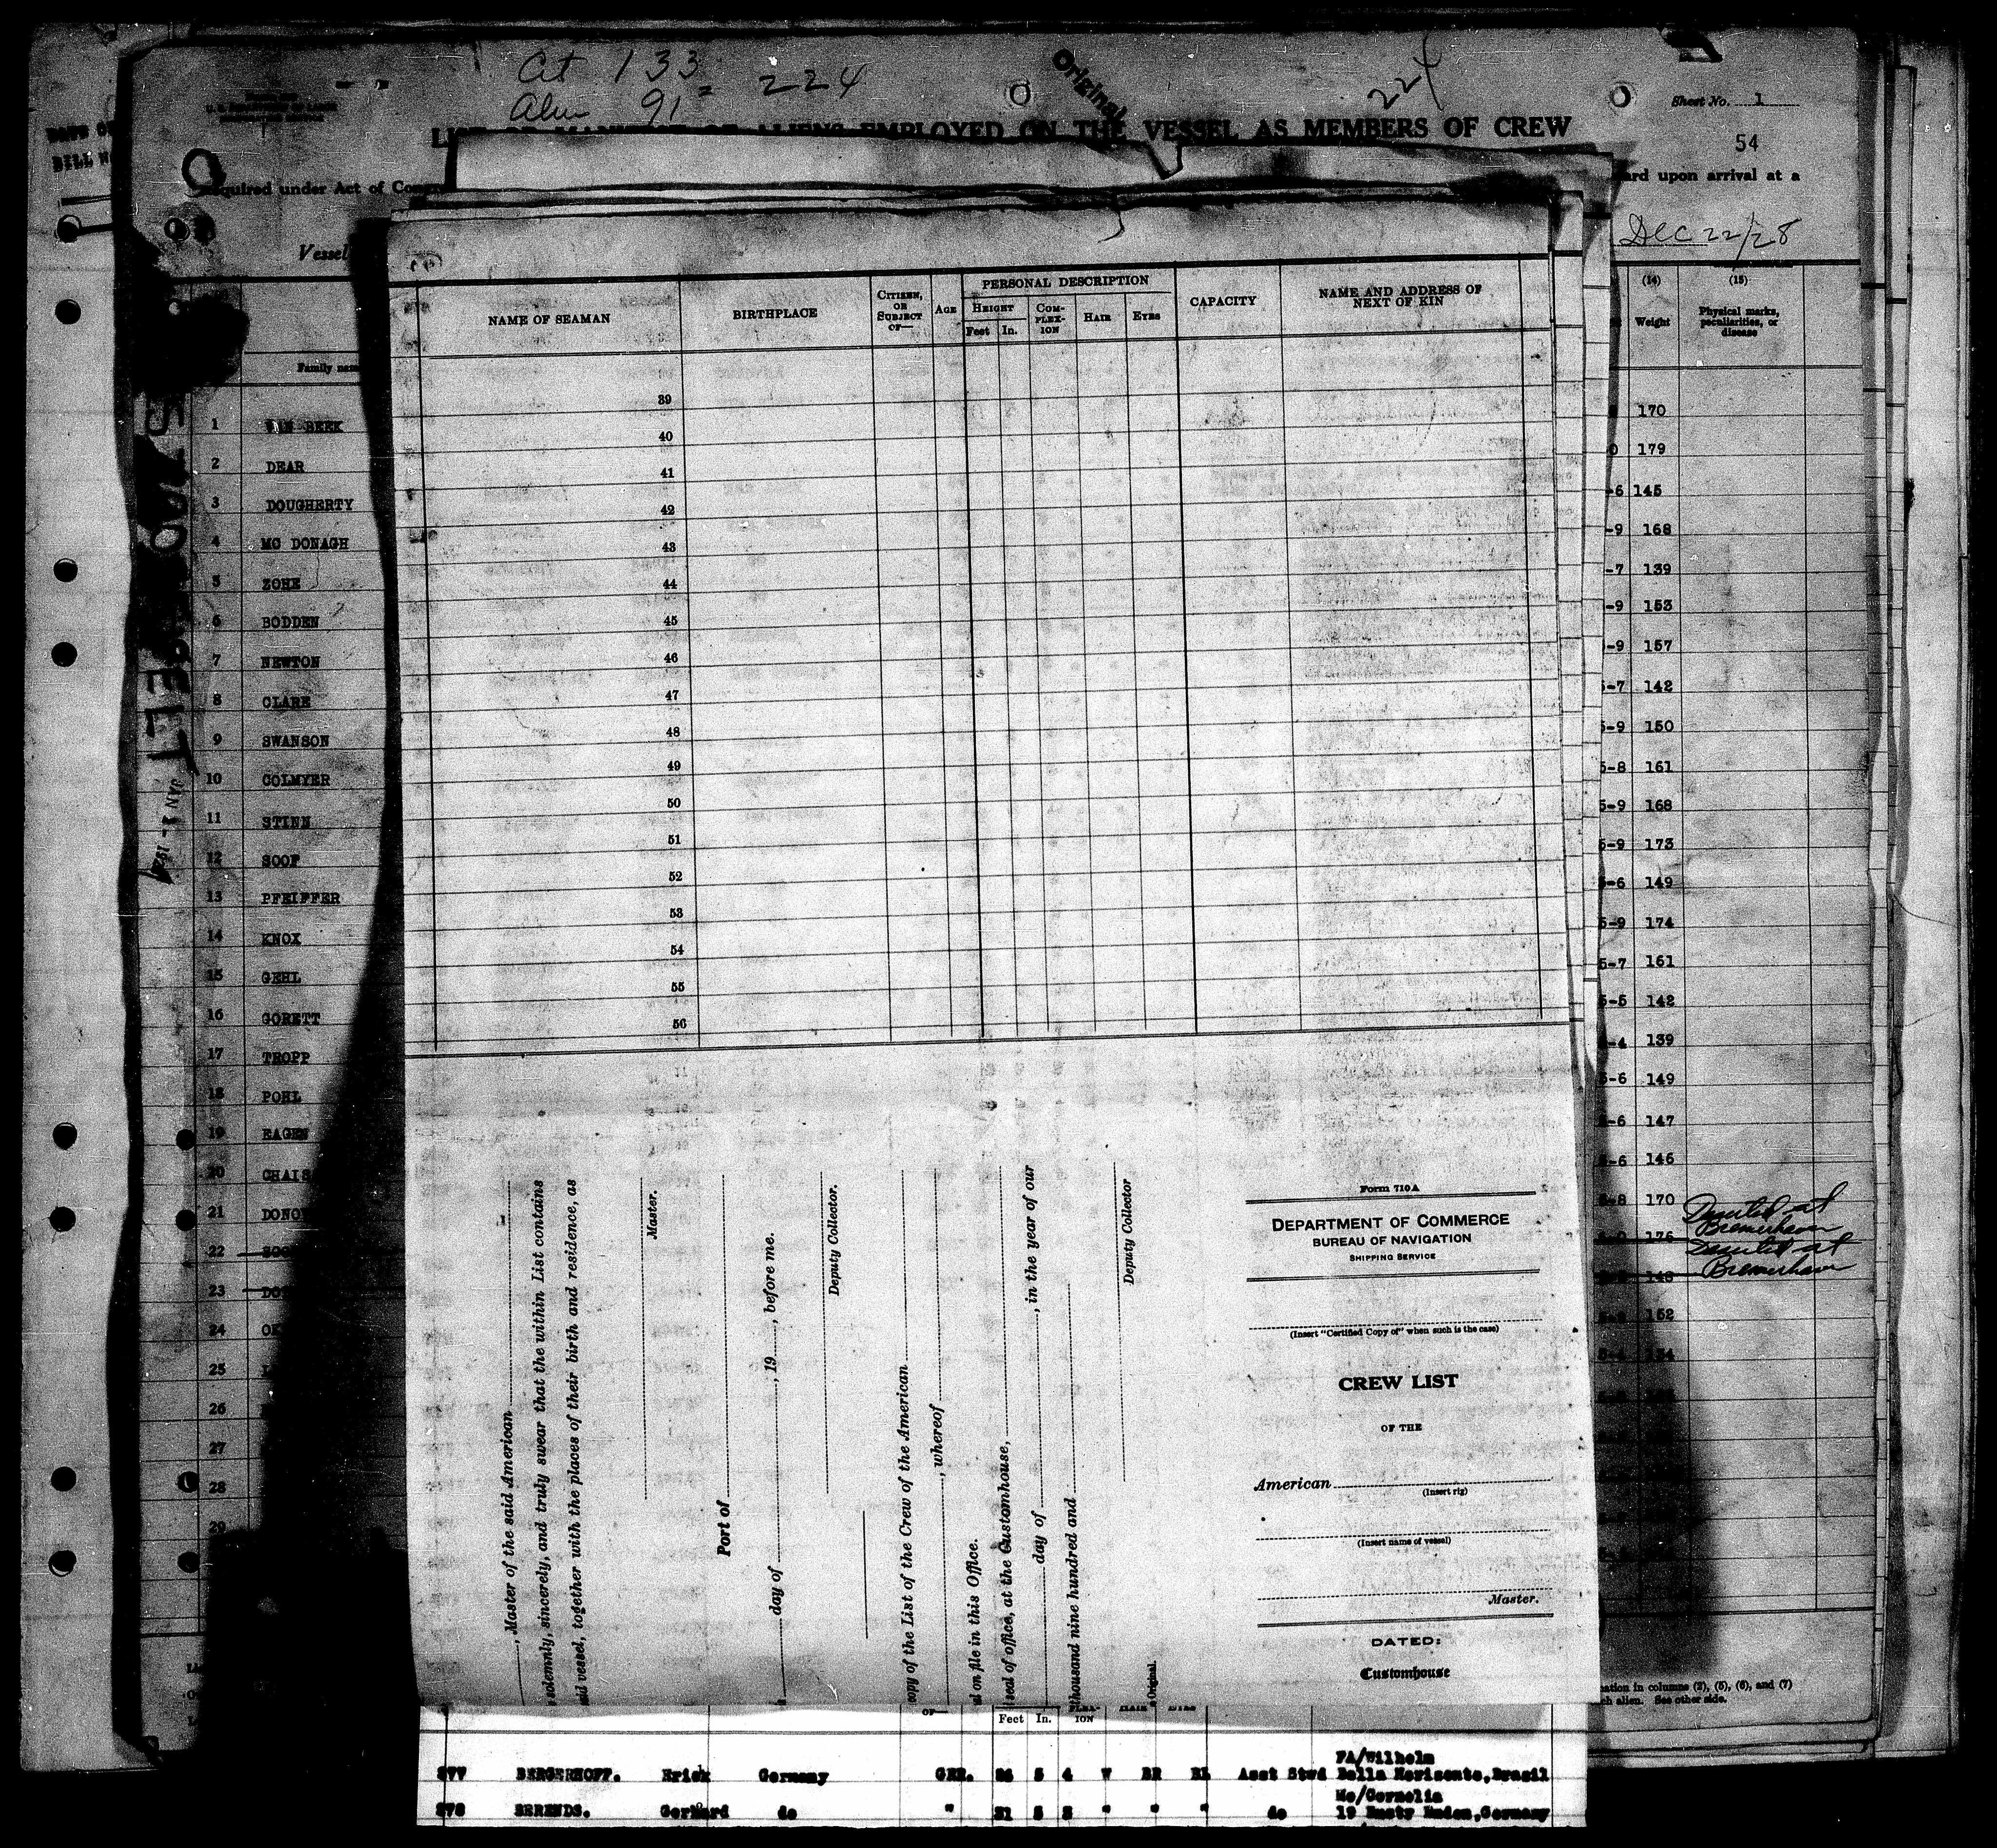 at 133
Alu 91 = 224
Original
224
Sheet No. 1
LIST OR MANIFEST OF ALIENS EMPLOYED ON THE VESSEL AS MEMBERS OF CREW
54
Required under Act of
ard upon arrival at a
Vessel
Dec 22/28
NAME OF SEAMAN
BIRTHPLACE
CITIZEN, OR SUBJECT OF—
AGE
PERSONAL DESCRIPTION
HEIGHT
Feet In.
COM-PLEX-ION
HAIR
EYES
CAPACITY
NAME AND ADDRESS OF NEXT OF KIN
(14)
Weight
(15)
Physical marks, peculiarities, or disease
Family nam
39
40
41
42
43
44
45
46
47
48
49
50
51
52
53
54
55
56
1 VAN BEEK
2 DEAR
3 DOUGHERTY
4 MC DONAGH
5 ZOHE
6 BODDEN
7 NEWTON
8 CLARE
9 SWANSON
10 COLMYER
11 STINN
12 SOOP
13 PFEIFFER
14 KNOX
15 GEHL
16 GORETT
17 TROPP
18 POHL
19 EAGEN
20 CHAIS
21 DONO
22
23
24
25
26
27
28
29
JAN 2-
170
179
-6 145
-9 168
-7 139
-9 153
-9 157
5-7 142
5-9 150
5-8 161
5-9 168
5-9 173
5-6 149
5-9 174
5-7 161
5-5 142
-4 139
5-6 149
-6 147
-6 146
-8 170
176
148
152
134
Deserted at
Bremerhaven
Deserted at
Bremerhaven
, Master of the said American
solemnly, sincerely, and truly swear that the within List contains
aid vessel, together with the places of their birth and residence, as
Master.
Port of
day of , 19 , before me.
Deputy Collector.
copy of the List of the Crew of the American
, whereof
al on file in this Office.
seal of office, at the Customhouse,
day of , in the year of our
thousand nine hundred and
Deputy Collector
Original.
Form 710A
DEPARTMENT OF COMMERCE
BUREAU OF NAVIGATION
SHIPPING SERVICE
(Insert "Certified Copy of" when such is the case)
CREW LIST
OF THE
American
(Insert rig)
(Insert name of vessel)
Master.
DATED:
Customhouse
ation in columns (2), (5), (6), and (7)
ch alien. See other side.
OF—
Feet In.
PLEX-ION
HAIR
EYES
FA/Wilhelm
277 BERGERHOFF. Erick Germany GER. 26 5 4 W BR BL Asst Stwd Bella Horisonte,Brazil
Mo/Cornelia
278 BERENDS. Gerhard do " 21 5 3 " " " do 19 Emsty Emden,Germany